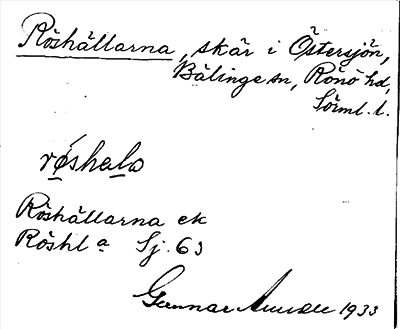 Röshällarna, skär i Östersjön,
Bälinge sn, Rönö hd,
Sörml. l.
röshala
Röshällarna ek
Röshl a Sj. 63
Gunnar 1933